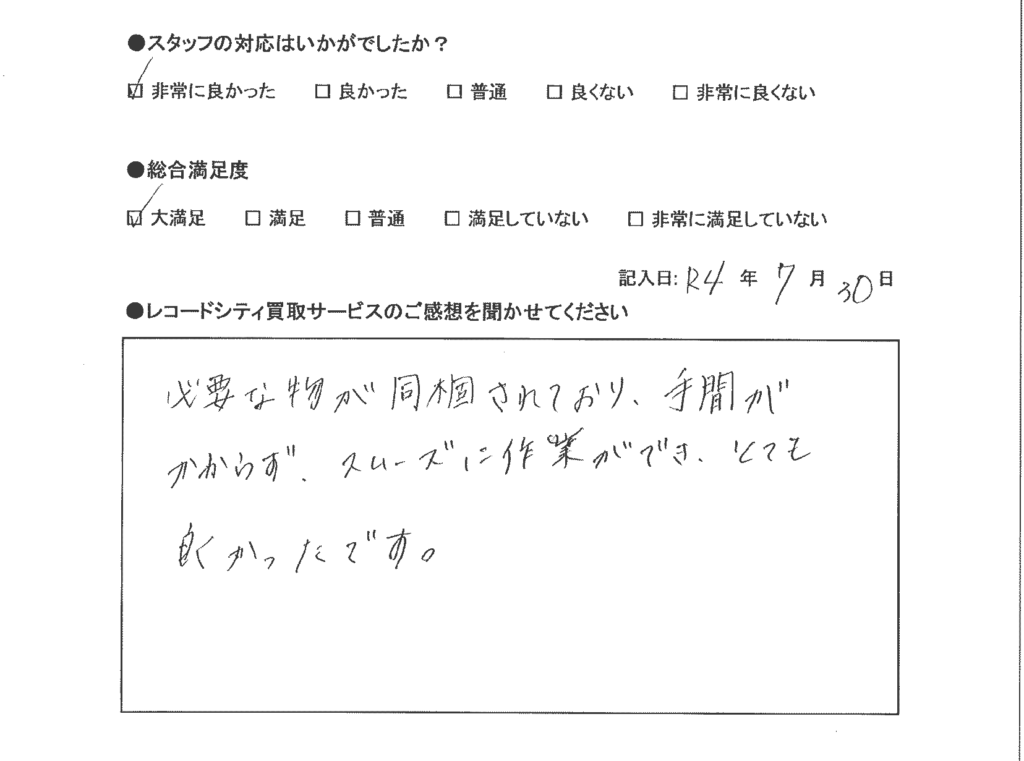 ●スタッフの対応はいかがでしたか?
☑ 非常に良かった □ 良かった □ 普通 □ 良くない □ 非常に良くない
●総合満足度
☑ 大満足 □ 満足 □ 普通 □ 満足していない □ 非常に満足していない
記入日: R4 年 7 月 30 日
●レコードシティ買取サービスのご感想を聞かせてください
必要な物が同梱されており、手間が
かからず、スムーズに作業ができ、とても
良くかったです。